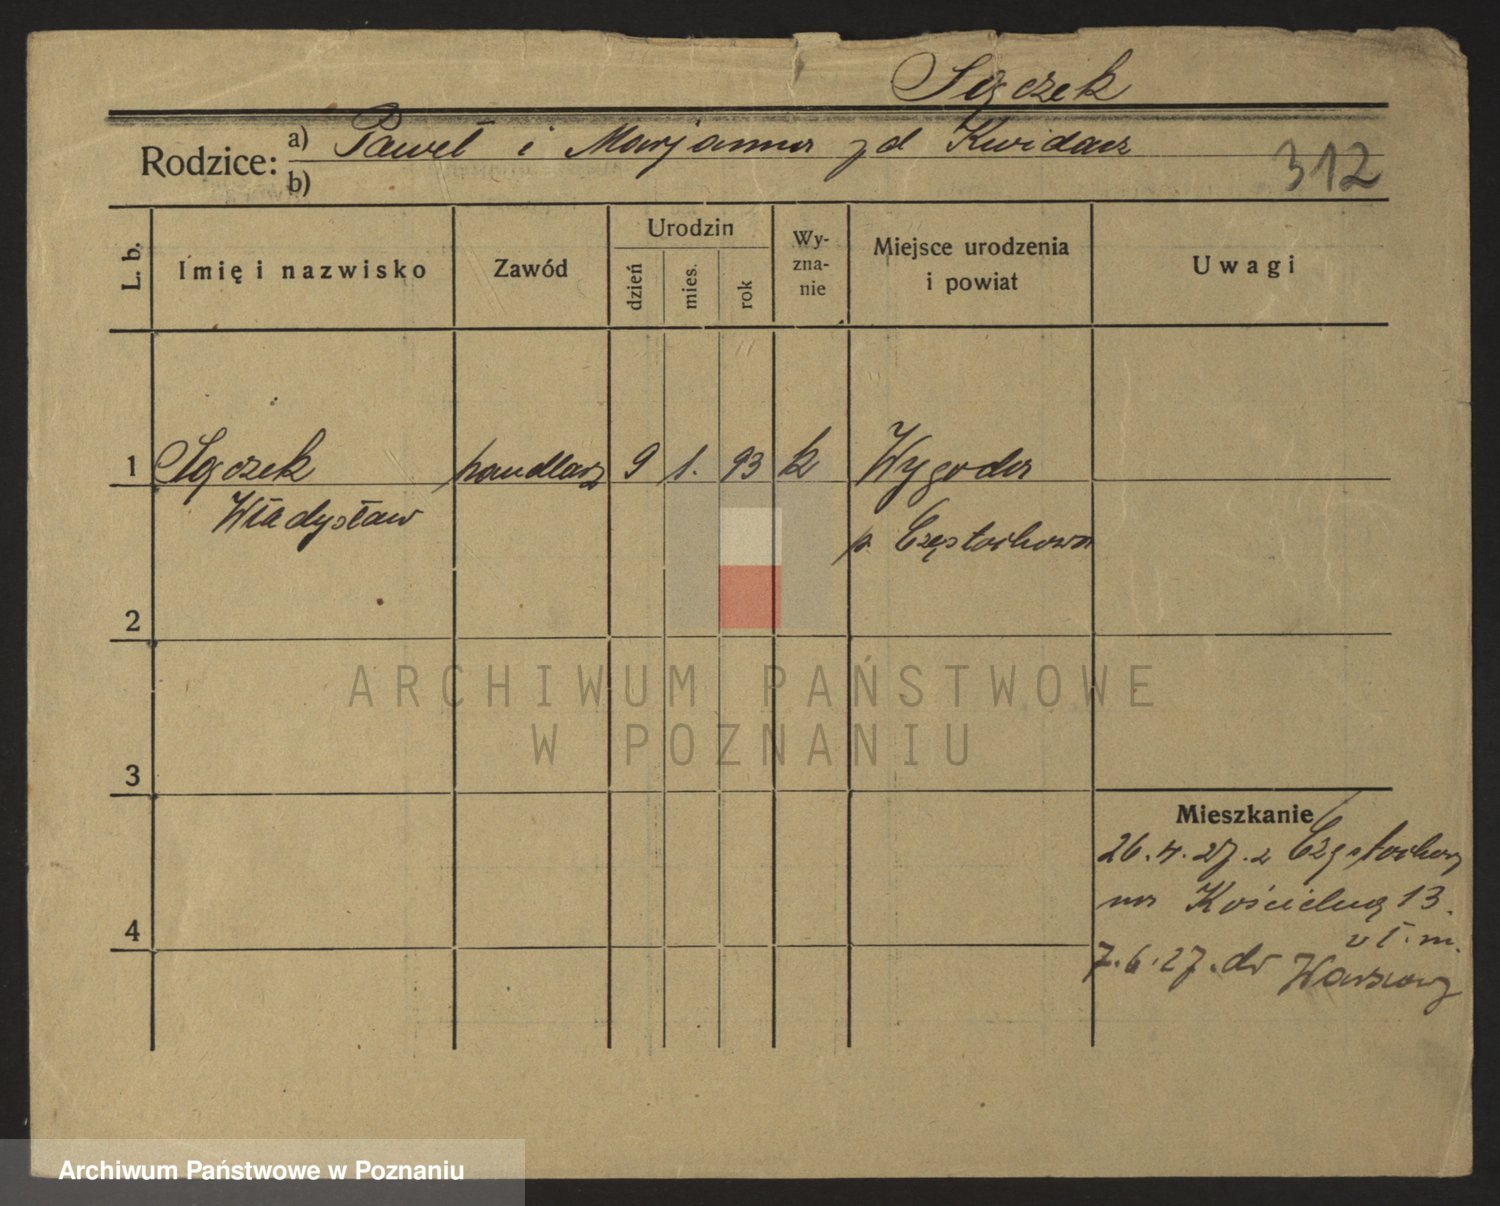 Sączek
Rodzice: a) Paweł i Marjanna zd Kwidacz
b)
312
L. b. Imię i nazwisko Zawód Urodzin dzień mies. rok Wy-zna-nie Miejsce urodzenia i powiat Uwagi
1 Sączek handlarz 9 1. 93 k Wygoda
Władysław p. Częstochowa
2
3
4
Mieszkanie
26.4.27. z Częstochowy
na Kościelną 13.
7.6.27. do Warszawy
ARCHIWUM PAŃSTWOWE
W POZNANIU
Archiwum Państwowe w Poznaniu